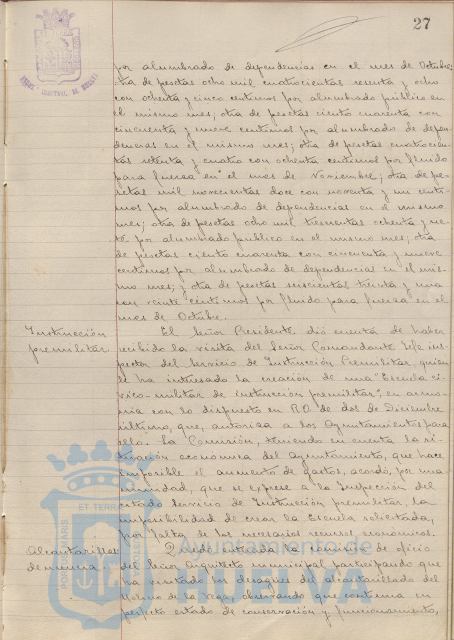 27
por alumbrado de dependencias en el mes de Octubre;
otra de pesetas ocho mil cuatrocientas sesenta y ocho
con ochenta y cinco centimos por alumbrado público en
el mismo mes; otra de pesetas ciento cuarenta con
cincuenta y nueve centimos por alumbrado de depen-
dencias en el mismo mes; otra de pesetas cuatrocien-
tas setenta y cuatro con ochenta centimos por fluido
para fuerza en el mes de Noviembre; otra de pe-
setas mil novecientas doce con noventa y un centi-
mos por alumbrado de dependencias en el mismo
mes; otra de pesetas ocho mil trescientas ochenta y sie-
te por alumbrado publico en el mismo mes; otra
de pesetas ciento cuarenta con cincuenta y nueve
centimos por alumbrado de dependencias en el mis-
mo mes; y otra de pesetas doscientas treinta y una
con veinte centimos por fluido para fuerza en el
mes de Octubre.
Instrucción
premilitar.
El Señor Presidente dió cuenta de haber
recibido la visita del Señor Comandante Jefe ins-
pector del Servicio de Instrucción Premilitar, quien
le ha interesado la creación de una "Escuela ci-
vico-militar de instrucción premilitar", en armo-
nia con lo dispuesto en R.O. de dos de Diciembre
último, que autoriza a los Ayuntamientos para
ello. La Comisión, teniendo en cuenta la si-
tuación economica del Ayuntamiento, que hace
imposible el aumento de gastos, acordó, por una-
nimidad, que se exprese a la Inspección del
citado Servicio de Instrucción premilitar, la
imposibilidad de crear la Escuela solicitada,
por falta de los necesarios recursos economicos.
Alcantarillas
denuncia.
Quedó enterada la Comisión de oficio
del Señor Arquitecto municipal participando que
ha visitado los desagües del alcantarillado del
Molino de la Vega, observando que continua en
perfecto estado de conservación y funcionamiento,
Ayuntamiento de
HUELVA